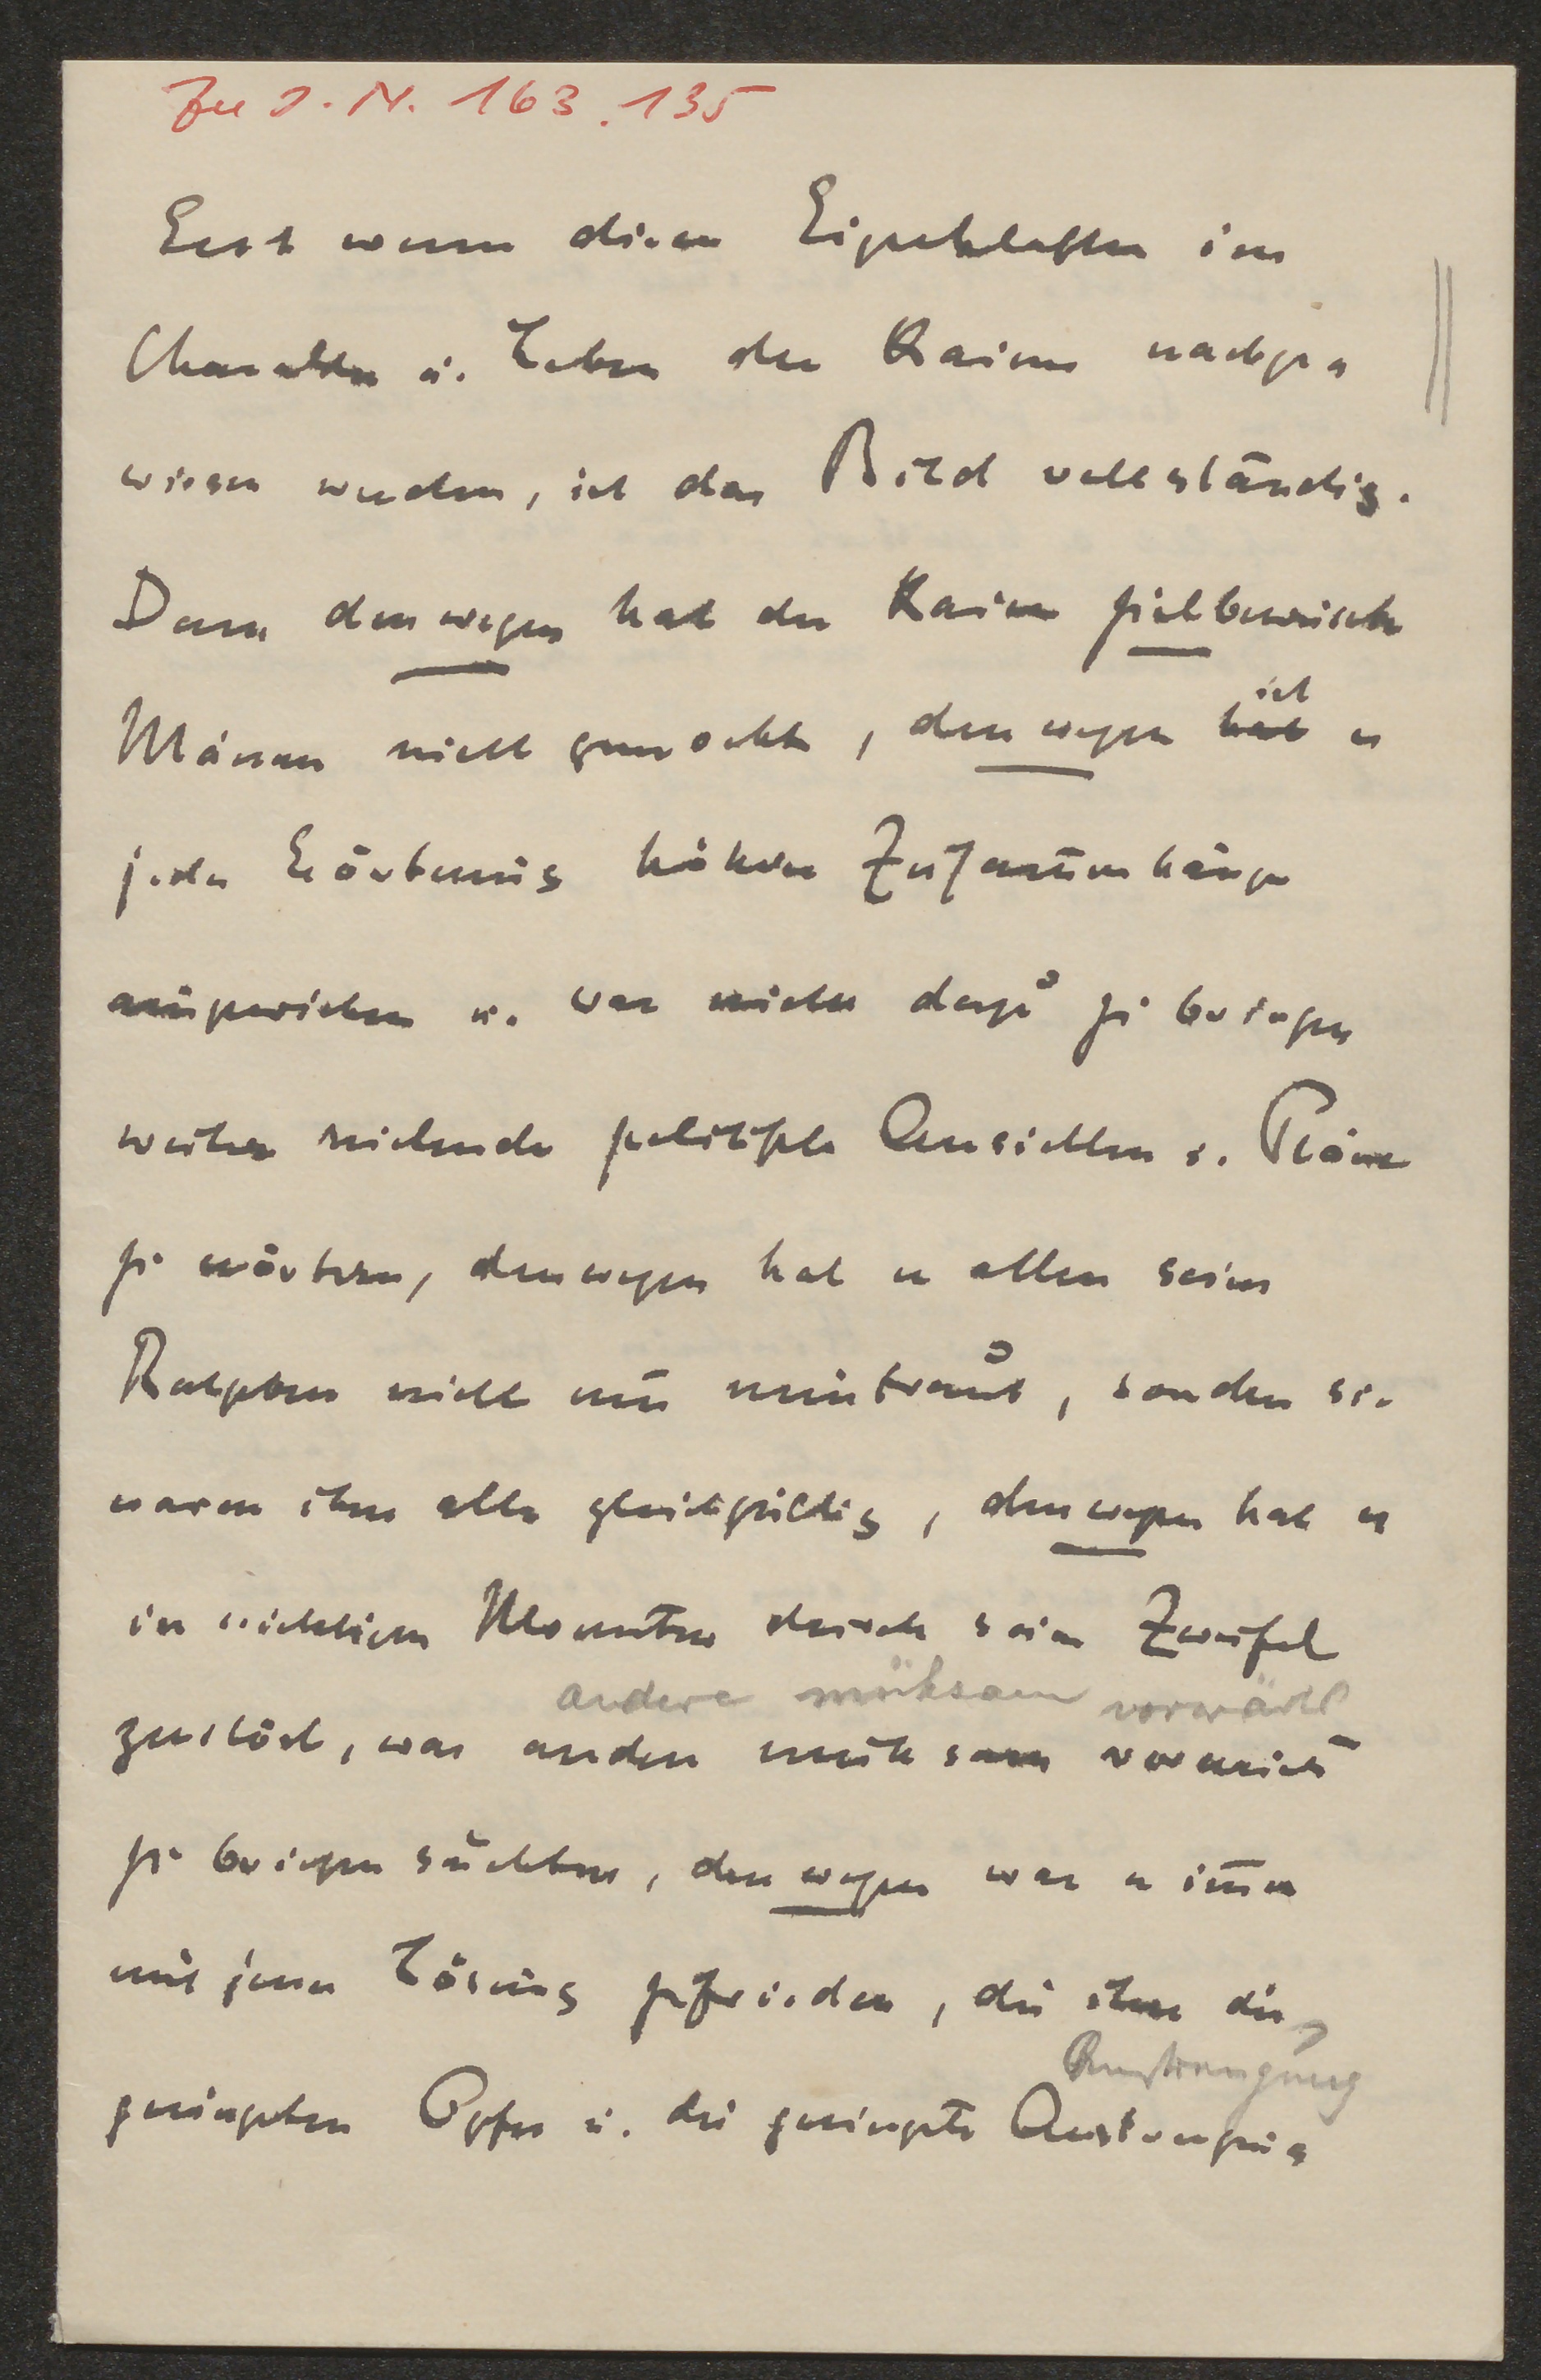 Zu J. N. 163.135
Erst wenn diese Eigenschaften im
Charakter u. Leben des Kaisers nachge
wiesen werden, ist das Bild vollständig.
Denn deswegen hat der Kaiser zielbewusste
Männer nicht gemocht, deswegen hat ist er
jeder Erörterung höherer Zusammenhänge
ausgewichen u. war nicht dazu zu bringen
weiter reichende politische Ansichten u. Pläne
zu erörtern, deswegen hat er allen seinen
Ratgebern nicht nur misstraut, sondern sie
waren ihm alle gleichgültig, deswegen hat er
in wichtigen Momenten durch seine Zweifel
andere mühsam vorwärts
zerstört, was andere mühsam vorwärts
zu bringen suchten, deswegen war er immer
mit jener Lösung zufrieden, die ihm die
Anstrengung
geringsten Opfer u. die geringste Anstrengung